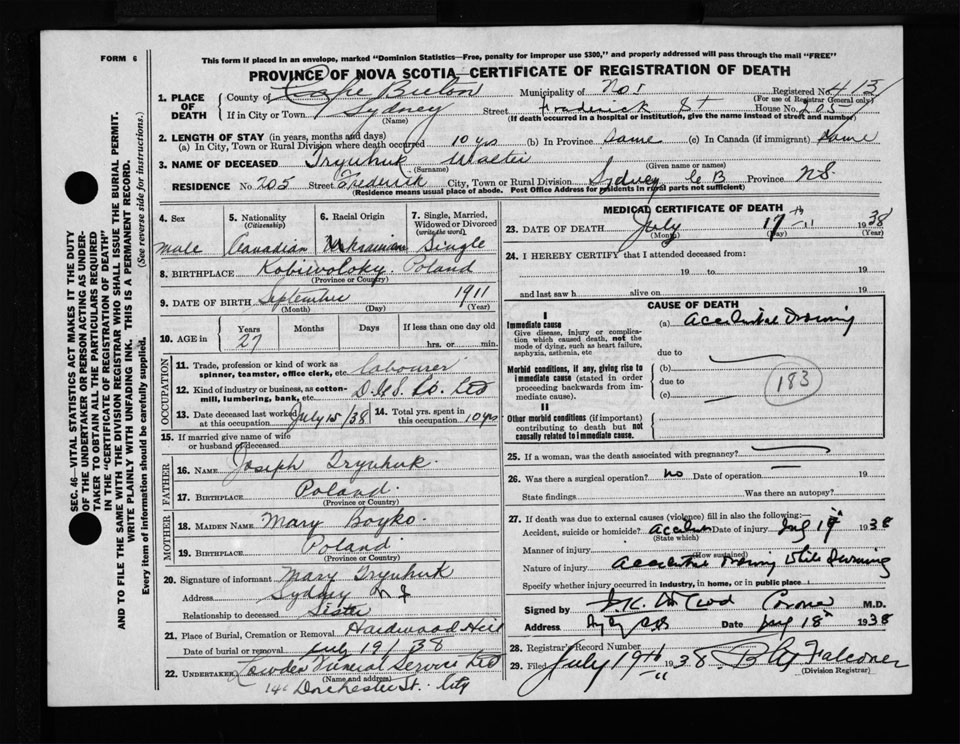 FORM 6
This form if placed in an envelope, marked "Dominion Statistics—Free, penalty for improper use $300," and properly addressed will pass through the mail "FREE"
PROVINCE OF NOVA SCOTIA—CERTIFICATE OF REGISTRATION OF DEATH
1. PLACE OF DEATH County of Cape Breton Municipality of No 1 Registered No. 413
(For use of Registrar General only)
If in City or Town Sydney Street Fradrick St House No. 205
(Name) (If death occurred in a hospital or institution, give the name instead of street and number)
2. LENGTH OF STAY (in years, months and days)
(a) In City, Town or Rural Division where death occurred 10 yrs (b) In Province Same (c) In Canada (if immigrant) Same
3. NAME OF DECEASED Trynhuk Walter
(Surname) (Given name or names)
RESIDENCE No. 205 Street Frederick City, Town or Rural Division Sydney C B Province N S.
(Residence means usual place of abode. Post Office Address for residents in rural parts not sufficient)
4. Sex Male
5. Nationality (Citizenship) Canadian
6. Racial Origin Ukrainian
7. Single, Married, Widowed or Divorced (write the word) Single
8. BIRTHPLACE Poland
(Province or Country)
9. DATE OF BIRTH September 1911
(Month) (Day) (Year)
10. AGE in Years 27 Months Days If less than one day old
hrs. or min.
OCCUPATION
11. Trade, profession or kind of work as spinner, teamster, office clerk, etc. Labourer
12. Kind of industry or business, as cotton-mill, lumbering, bank, etc. D.&S. Co. Ltd
13. Date deceased last worked at this occupation July 15/38 14. Total yrs. spent in this occupation 10 yrs
15. If married give name of wife or husband of deceased
FATHER
16. Name Joseph Trynhuk.
17. Birthplace Poland.
(Province or Country)
MOTHER
18. Maiden Name Mary Boyko.
19. Birthplace Poland
(Province or Country)
20. Signature of informant Mary Trynhuk
Address Sydney N S
Relationship to deceased Sister
21. Place of Burial, Cremation or Removal Hardwood Hill
Date of burial or removal July 19/38
22. Undertaker Lowden Funeral Service Ltd
(Name and address)
Dorchester St. City
MEDICAL CERTIFICATE OF DEATH
23. DATE OF DEATH July 17th 1938
(Month) (Day) (Year)
24. I HEREBY CERTIFY that I attended deceased from:
19 to 19
and last saw h alive on 19
CAUSE OF DEATH
I
Immediate cause
Give disease, injury or complication which caused death, not the mode of dying, such as heart failure, asphyxia, asthenia, etc
(a) Accidental Drowning
due to
Morbid conditions, if any, giving rise to immediate cause (stated in order proceeding backwards from immediate cause).
(b)
due to
(c)
183
II
Other morbid conditions (if important) contributing to death but not causally related to immediate cause.
25. If a woman, was the death associated with pregnancy?
26. Was there a surgical operation? no Date of operation 19
State findings Was there an autopsy?
27. If death was due to external causes (violence) fill in also the following:
Accident, suicide or homicide? Accident Date of injury July 17th 1938
(State which)
Manner of injury
(How sustained)
Nature of injury Accidental Drowning while Swimming
Specify whether injury occurred in industry, in home, or in public place
Signed by Coroner M.D.
Address Date July 18th 1938
28. Registrar's Record Number
29. Filed July 19th 1938. Falconer
(Division Registrar)
SEC. 46—VITAL STATISTICS ACT MAKES IT THE DUTY
OF THE UNDERTAKER OR PERSON ACTING AS UNDER-
TAKER TO OBTAIN ALL THE PARTICULARS REQUIRED
IN THE "CERTIFICATE OF REGISTRATION OF DEATH"
AND TO FILE THE SAME WITH THE DIVISION REGISTRAR WHO SHALL ISSUE THE BURIAL PERMIT.
WRITE PLAINLY WITH UNFADING INK. THIS IS A PERMANENT RECORD.
Every item of information should be carefully supplied. (See reverse side for instructions.)